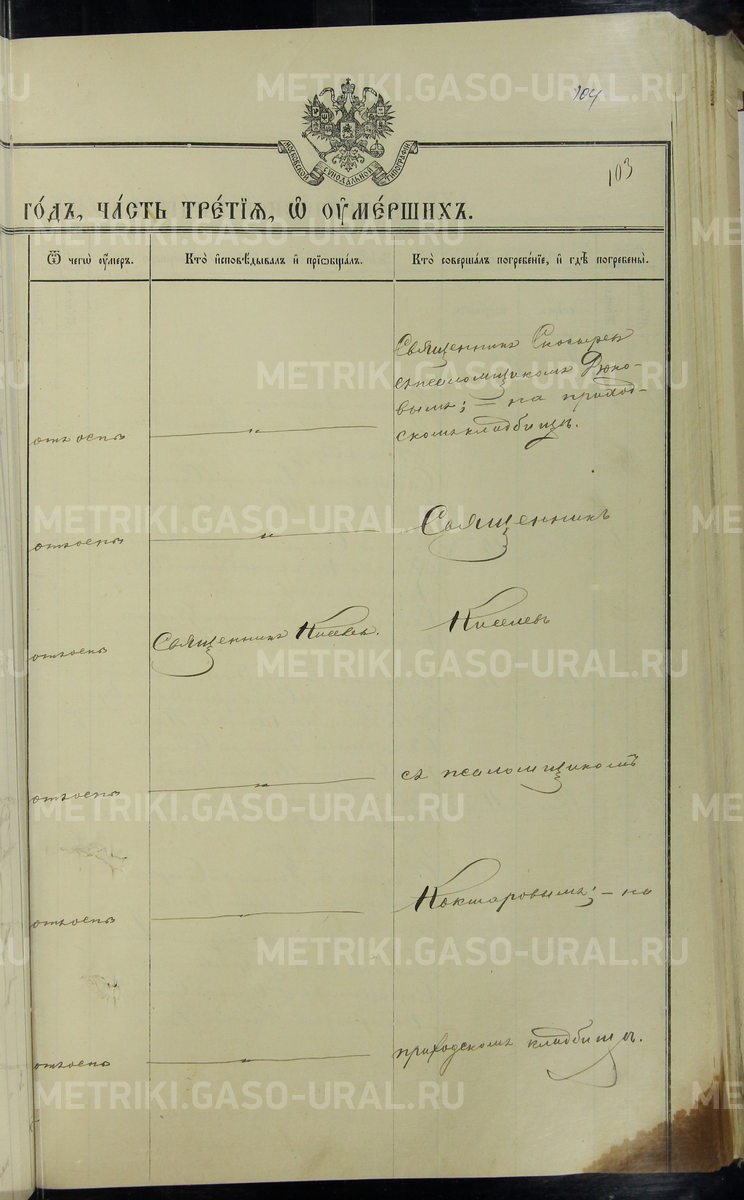 104
103
МОСКОВСКОЙ СѴНОДАЛЬНОЙ ТИПОГРАФІИ
ГО́ДЪ, ЧА́СТЬ ТРЕ́ТІѦ, Ѡ҆ ОУ҆МЕ́РШИХЪ.
Ѿ чегѡ̀ оу҆́меръ.
Кто̀ и҆сповѣ́дывалъ и҆ прїѡбща́лъ.
Кто̀ соверша́лъ погребе́нїе, и҆ гдѣ̀ погребены̀.
Священникъ
съ псаломщикомъ Дюко-
вымъ; — на приход-
скомъ кладбищѣ.
отъ оспы
отъ оспы
Священникъ
отъ оспы
Священникъ Киселевъ.
Киселевъ
отъ оспы
съ псаломщикомъ
отъ оспы
Кокшаровымъ; — на
отъ оспы
приходскомъ кладбищѣ.
METRIKI.GASO-URAL.RU